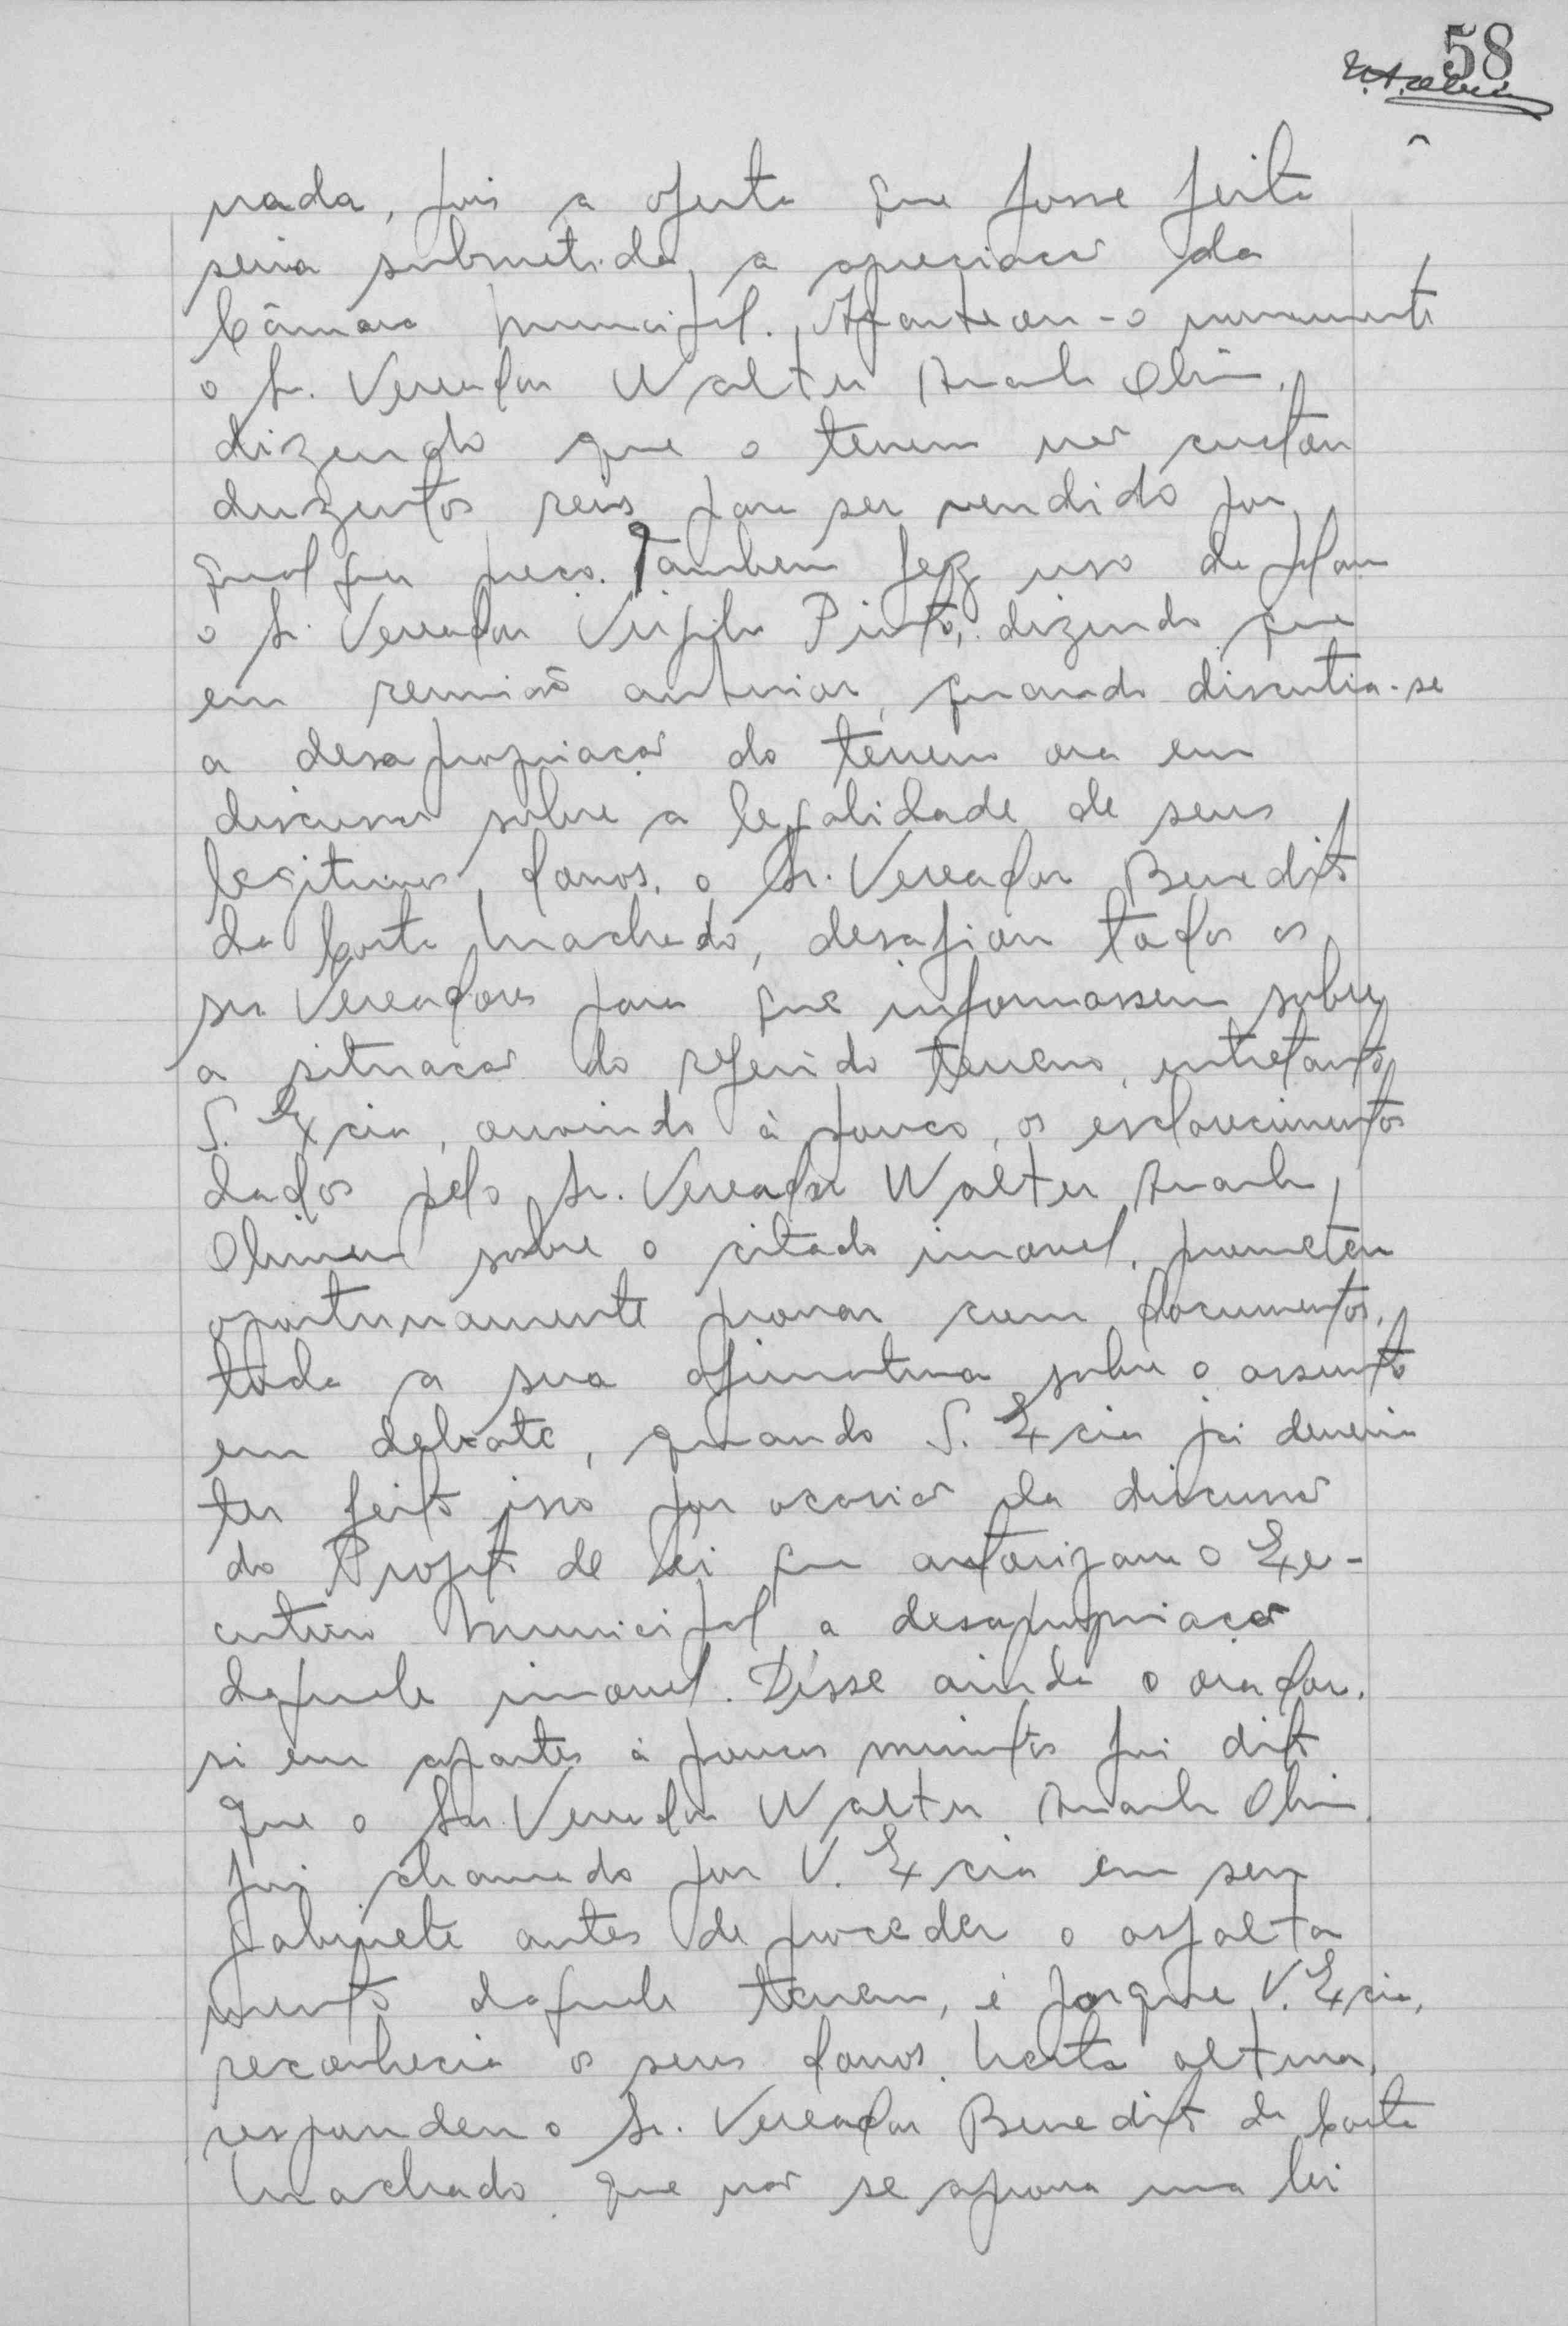 58
nada, pois a oferta que fosse feita
seria submetida, a apreciacão da
Câmara Municipal. Aparteou-o novamente
o Sr. Vereador Walter
dizendo que o terreno não custou
duzentos reis para ser vendido por
qualquer preço. Tambem fez uso da palavra
o Sr. Vereador Virgilio Pinto, dizendo que
em reunião anterior, quando discutia-se
a desapropriação do terreno ora em
discussão sobre a legalidade de seus
legitimos donos, o Sr. Vereador Benedito
da Costa Machado, desafiou todos os
srs Vereadores para que informassem sobre
a situacão do referido terreno, entretanto
S. Excia, ouvindo à pouco, os esclarecimentos
dados pelo Sr. Vereador Walter
Oliveira sobre o citado imovel, prometeu
oportunamente provar com documentos,
toda a sua afirmativa sobre o assunto
em debate, quando S. Excia já deveria
ter feito isso por ocasião da discussão
do Projeto de Lei que autorizava o Exe-
cutivo Municipal a desapropriação
daquele imovel. Disse ainda o orador,
si em apartes à poucos minutos foi dito
que o Snr. Vereador Walter
foi chamado por V. Excia em seu
gabinete antes de proceder o asfalta
mento daquele terreno, é porque V. Excia,
reconhecia os seus donos. Nesta altura,
respondeu o Sr. Vereador Benedito da Costa
Machado, que não se aprova uma lei